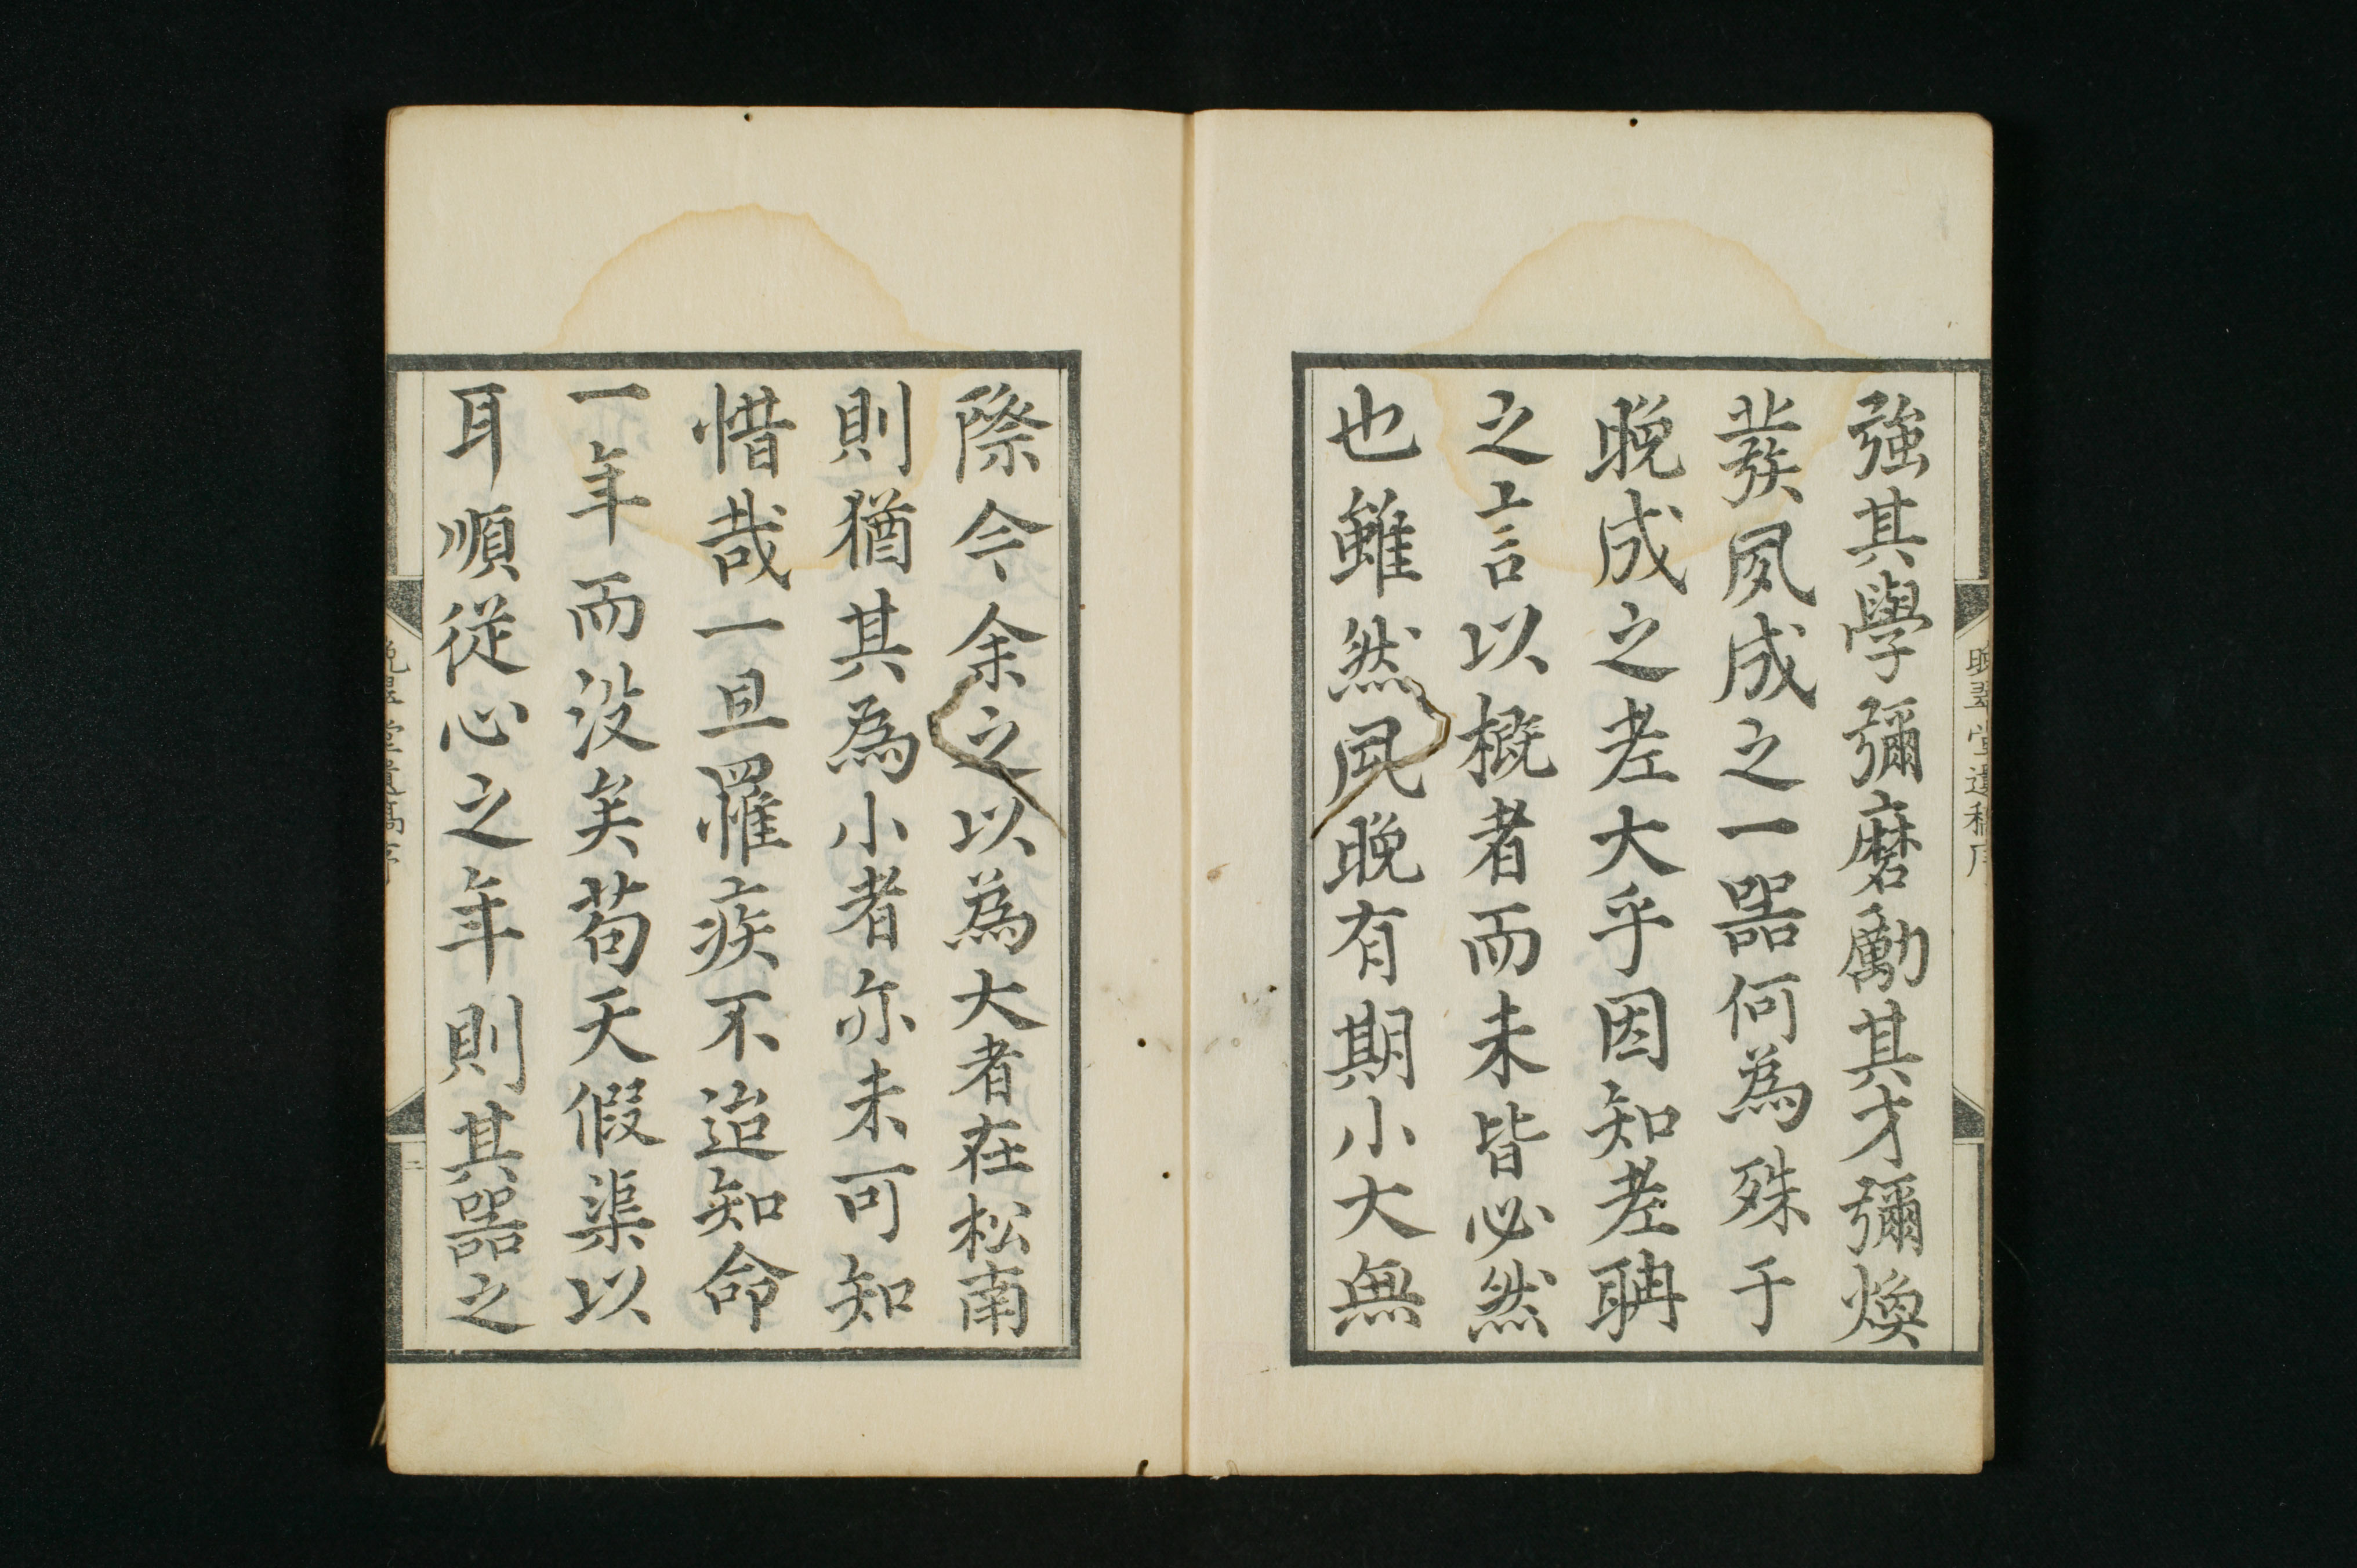 晚翠堂遺稿序
強其學彌磨勵其才彌煥
發夙成之一器何為殊于
晚成之老大乎因知老聃
之言以概者而未皆必然
也雖然夙晚有期小大無
際今余之以為大者在松南
則猶其為小者亦未可知
惜哉一旦罹疾不迨知命
一年而没矣苟天假渠以
耳順從心之年則其器之
晚翠堂遺稿序
二